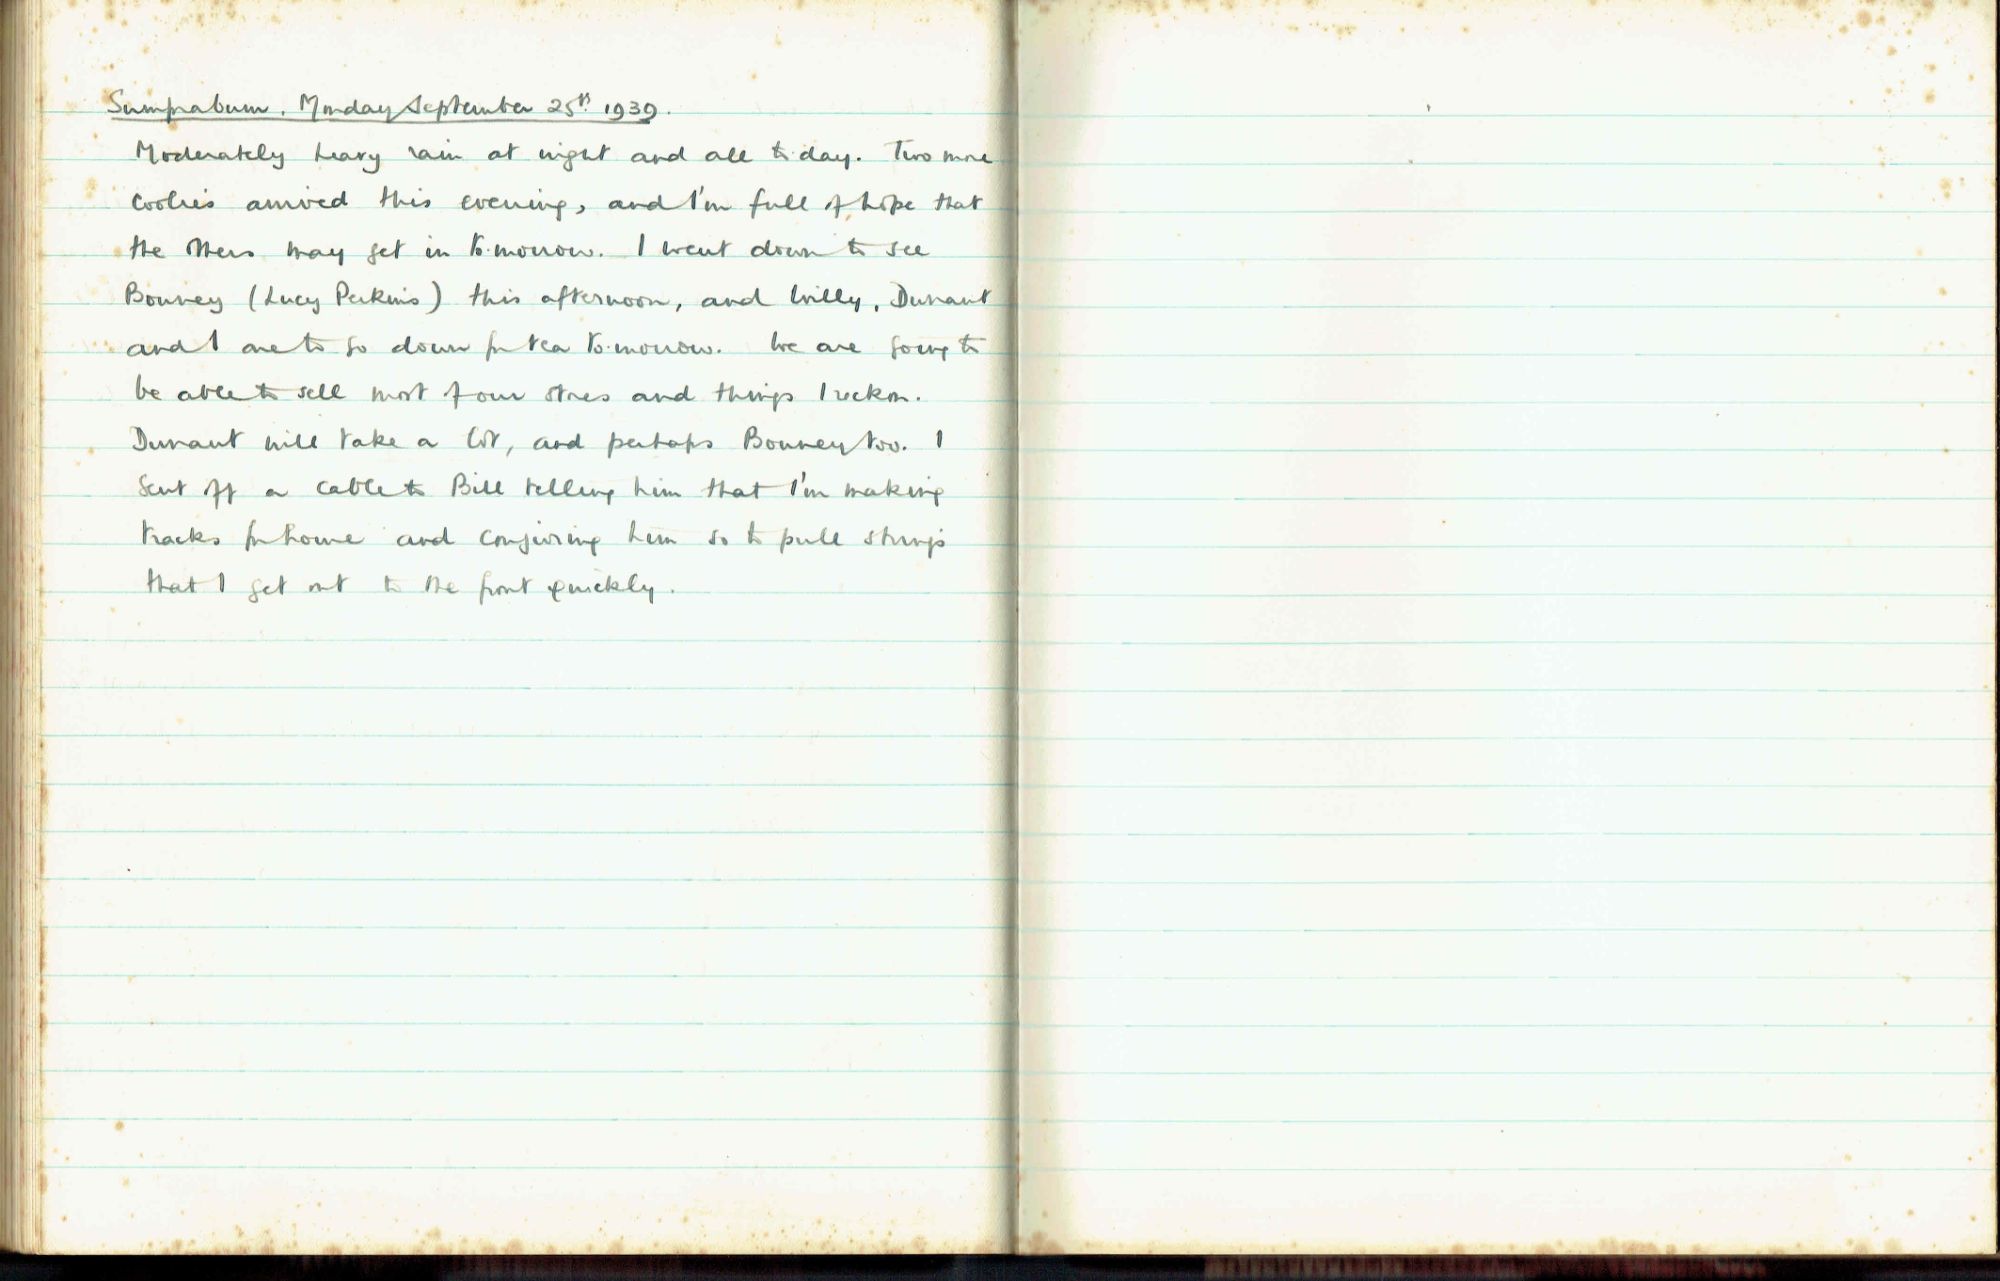 Sumprabum. Monday September 25th 1939.
Moderately heavy rain at night and all to-day. Two more
coolies arrived this evening, and I'm full of hope that
the others may get in to-morrow. I went down to see
Bonney (Lucy Perkins) this afternoon, and Willy, Durrant
and I are to go down for tea to-morrow. We are going to
be able to sell most of our stores and things I reckon.
Durrant will take a lot, and perhaps Bonney too. I
sent off a cable to Bill telling him that I'm making
tracks for home and conjuring him so to pull strings
that I get out to the front quickly.